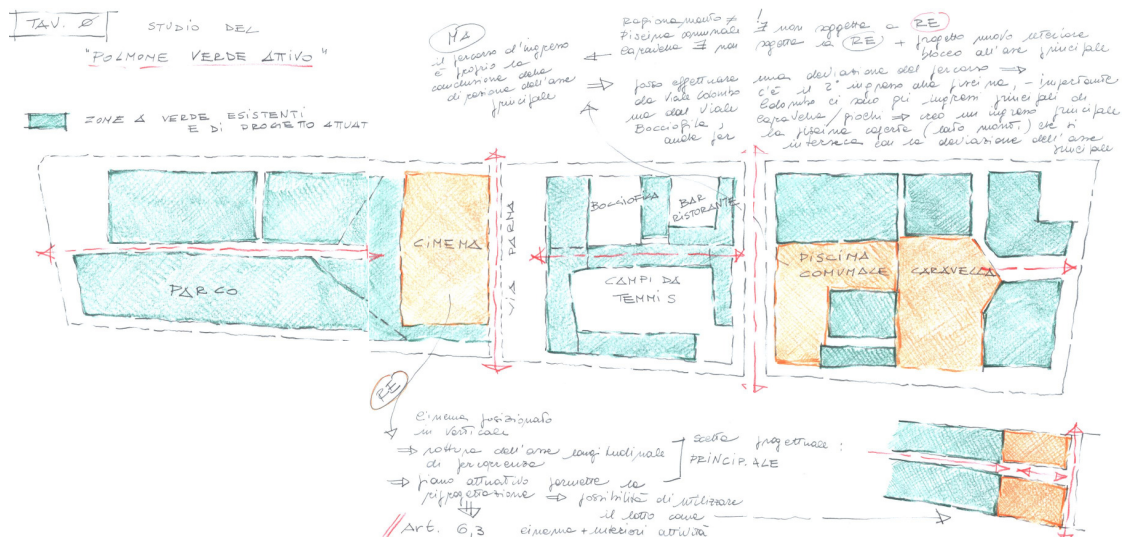 TAV. Ø
STUDIO DEL
"POLMONE VERDE ATTIVO"
ZONE A VERDE ESISTENTI
E DI PROGETTO ATTUAT
MA
il percorso d'ingresso
è proprio la
conclusione della
dell'asse
principale
Ragionamento ≠ !
Piscina comunale ∃ non soggetta a RE
Caravella ∃ non sogetta la RE + progetto nuovo ulteriore
blocco all'asse principale
⇒ posso effettuare una deviazione del percorso ⇒
da Viale Colombo c'è il 2° ingresso alla piscina, - importante
ma dal Viale Colombo ci sono gli ingressi principali di
Bocciofila, caravella/giochi ⇒ creo un ingresso principale
anche per la piscina coperta (lato monti) che si
interseca con la deviazione dell'asse
principale
PARCO
CINEMA
VIA PARMA
BOCCIOFILA
BAR
RISTORANTE
CAMPI DA
TENNIS
PISCINA
COMUNALE
CARAVELLA
RE
Cinema posizionato
in verticale
⇒ rottura dell'asse longitudinale
di percorrenza
⇒ piano attuativo permette la
riprogettazione ⇒ possibilità di utilizzare
il lotto come
cinema + ulteriori attività
// Art. 6,3
scelta progettuale :
PRINCIPALE